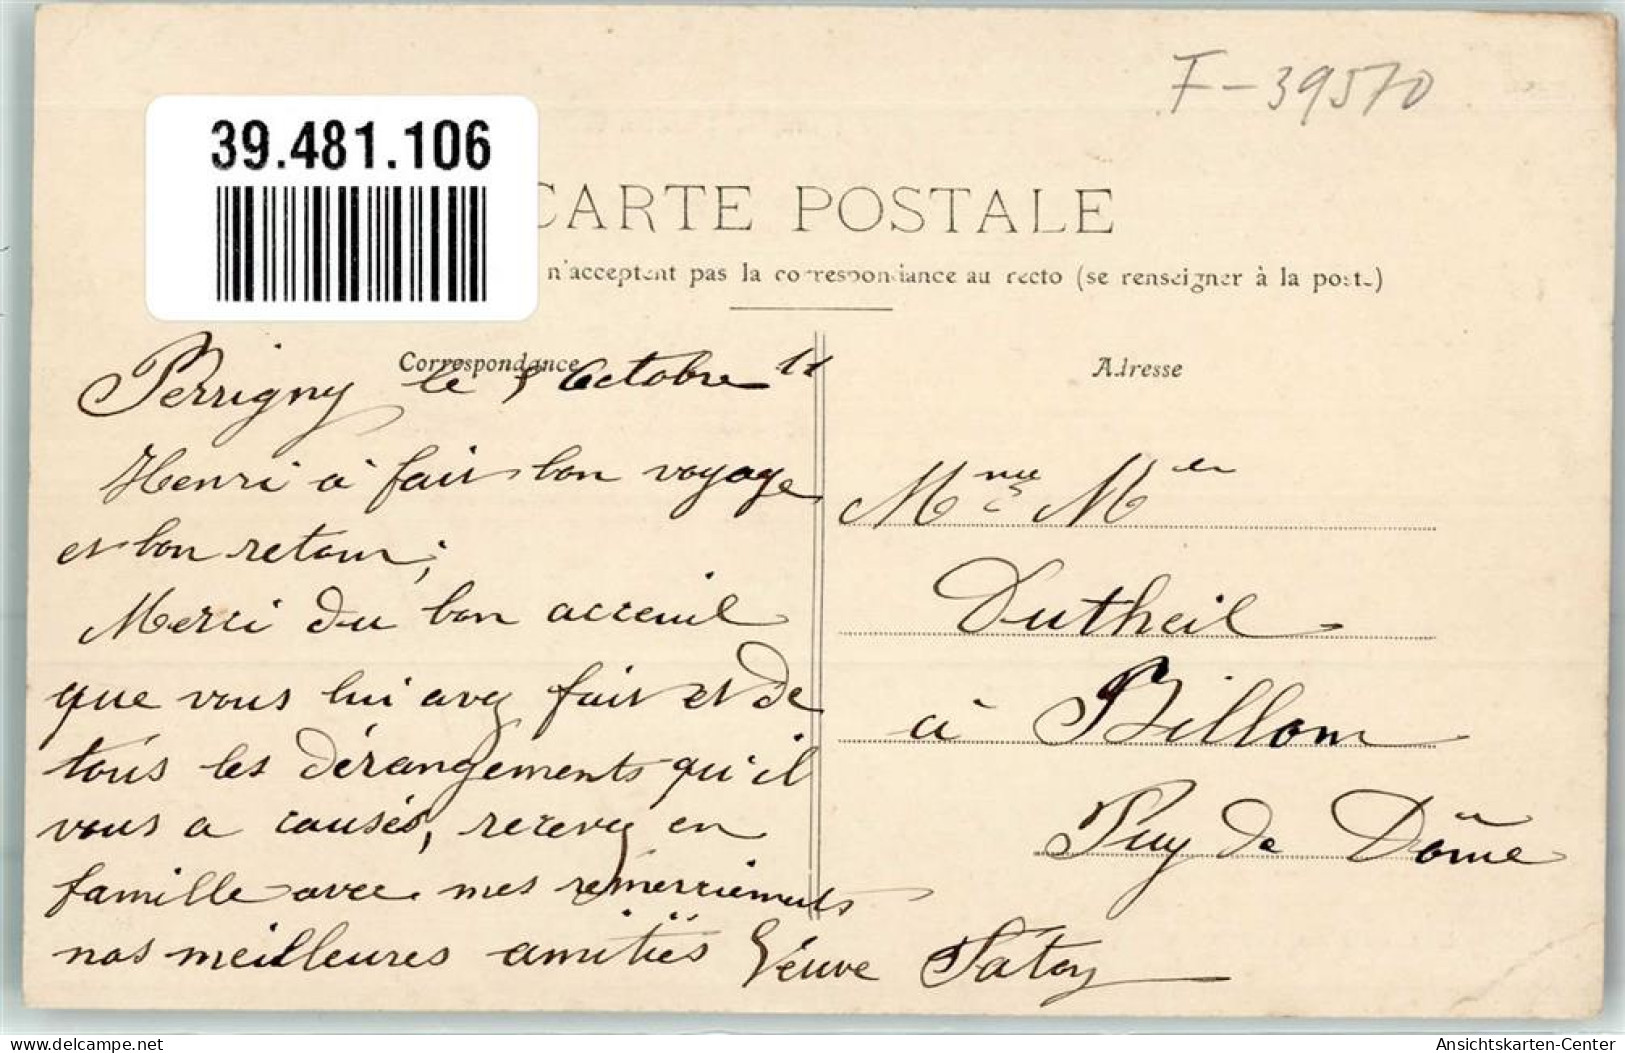 F-39570
39.481.106
CARTE POSTALE
n'acceptent pas la correspondance au recto (se renseigner à la poste)
Correspondance
Perrigny le 5 Octobre 11
Henri à fait bon voyage
et bon retour;
Merci du bon acceuil
que vous lui avez fait et de
tous les dérangements qu'il
vous a causés, recevez en
famille avec mes remerciements
nos meilleures amitiés Veuve
Adresse
Mme Mel
Dutheil
à Billom
Puy de Dôme
delcampe.net
Ansichtskarten-Center